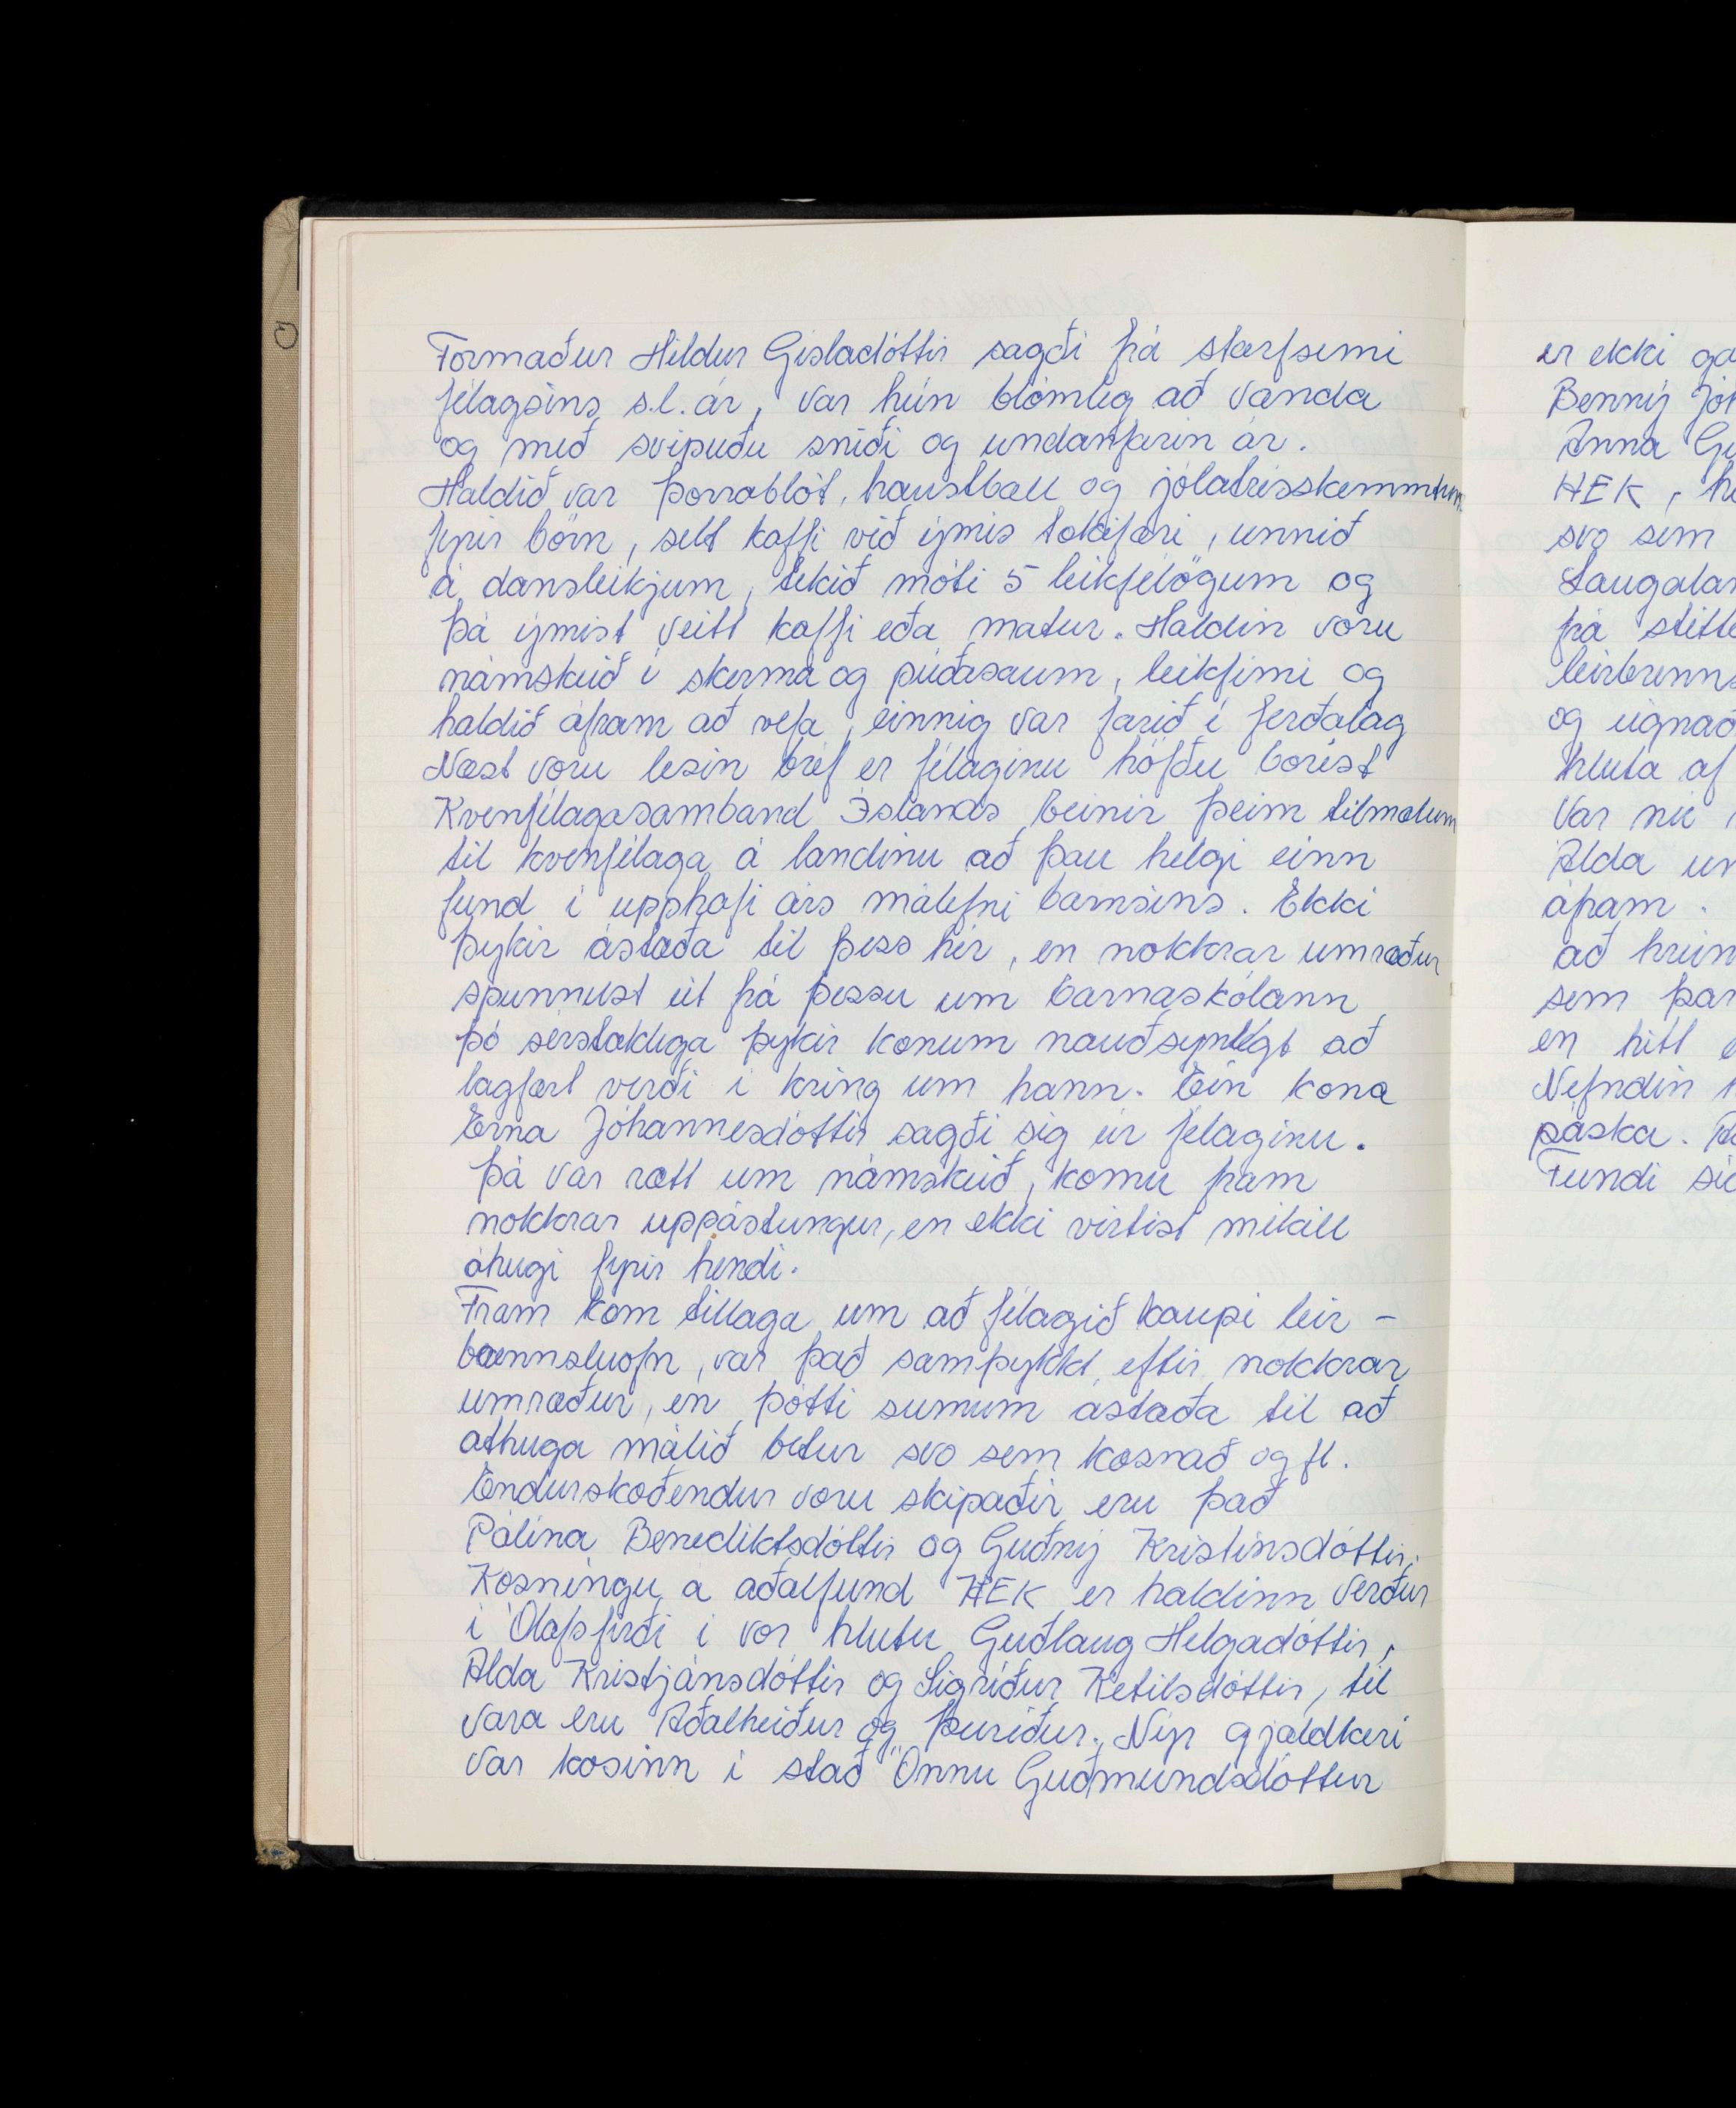 Formaður Hildur Gísladóttir sagði frá starfsemi
félagsins s.l. ár, var hún blómleg að vanda
og með svipuðu sniði og undanfarin ár.
Haldið var þorrablót, haustball og jólatrésskemmtun
fyrir börn, selt kaffi við ýmis tækifæri, unnið
á dansleikjum, tekið móti 5 leikfélögum og
þá ýmist veitt kaffi eða matur. Haldin voru
námskeið í skerma og púðasaum, leikfimi og
haldið áfram að vefa, einnig var farið í ferðalag
Næst voru lesin bréf er félaginu höfðu borist
Kvenfélagasamband Íslands beinir þeim tilmælum
til kvenfélaga á landinu að þau helgi einn
fund í upphafi árs málefni barnsins. Ekki
þykir ástæða til þess hér, en nokkrar umræður
spunnust út frá þessu um barnaskólann
þó sérstaklega þykir konum nauðsynlegt að
lagfært verði í kring um hann. Ein kona
Erna Jóhannesdóttir sagði sig úr félaginu.
Þá var rætt um námskeið, komu fram
nokkrar uppástungur, en ekki virtist mikill
áhugi fyrir hendi.
Fram kom tillaga um að félagið kaupi leir-
brennsluofn, var það samþykkt eftir nokkrar
umræður, en þótti sumum ástæða til að
athuga málið betur svo sem kosnað og fl.
Endurskoðendur voru skipaðir eru það
Pálína Benediktsdóttir og Guðný Kristinsdóttir.
Kosningu á aðalfund HEK er haldinn verður
í Ólafsfirði í vor hlutu Guðlaug Helgadóttir,
Alda Kristjánsdóttir og Sigríður Ketilsdóttir, til
vara eru Aðalheiður og Þuríður. Nýr gjaldkeri
var kosinn í stað Önnu Guðmundsdóttur
er ekki
Benný
Anna
HEK,
svo sem
frá
og
hluta af
Var nú
Alda
áfram.
að
sem
en hitt
Nefndin
páska.
Fundi